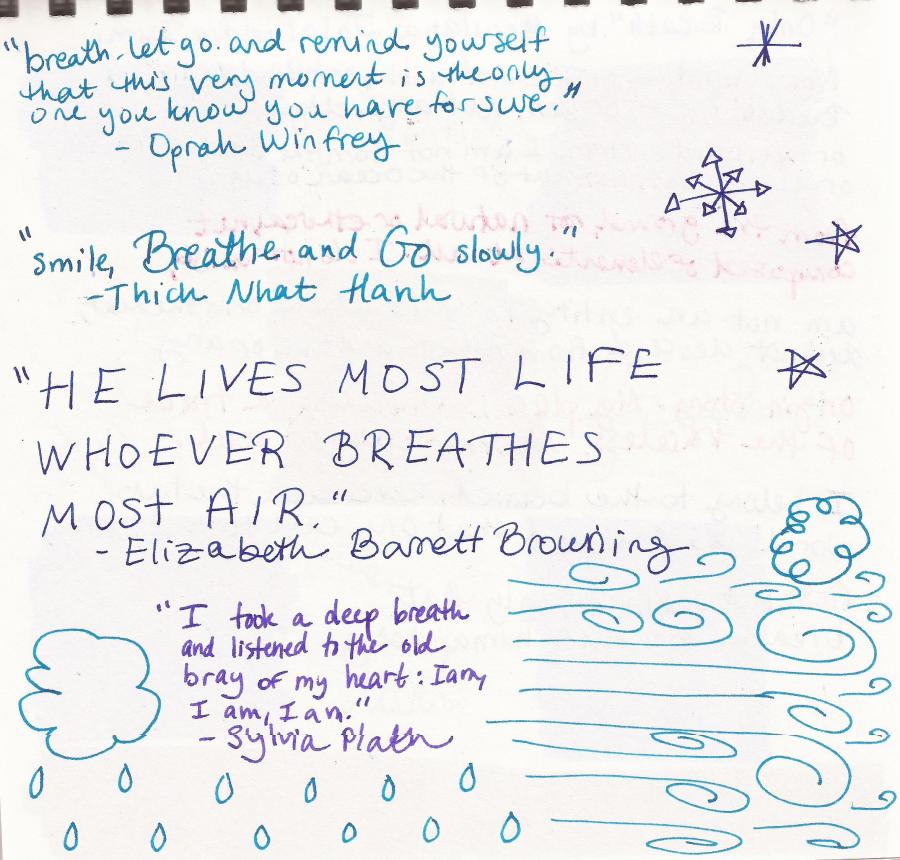 "breath. let go. and remind yourself
that this very moment is the only
one you know you have for sure."
- Oprah Winfrey
"smile, Breathe and Go slowly."
- Thich Nhat Hanh
"HE LIVES MOST LIFE
WHOEVER BREATHES
MOST AIR."
- Elizabeth Barrett Browning
"I took a deep breath
and listened to the old
bray of my heart: I am,
I am, I am."
- Sylvia Plath